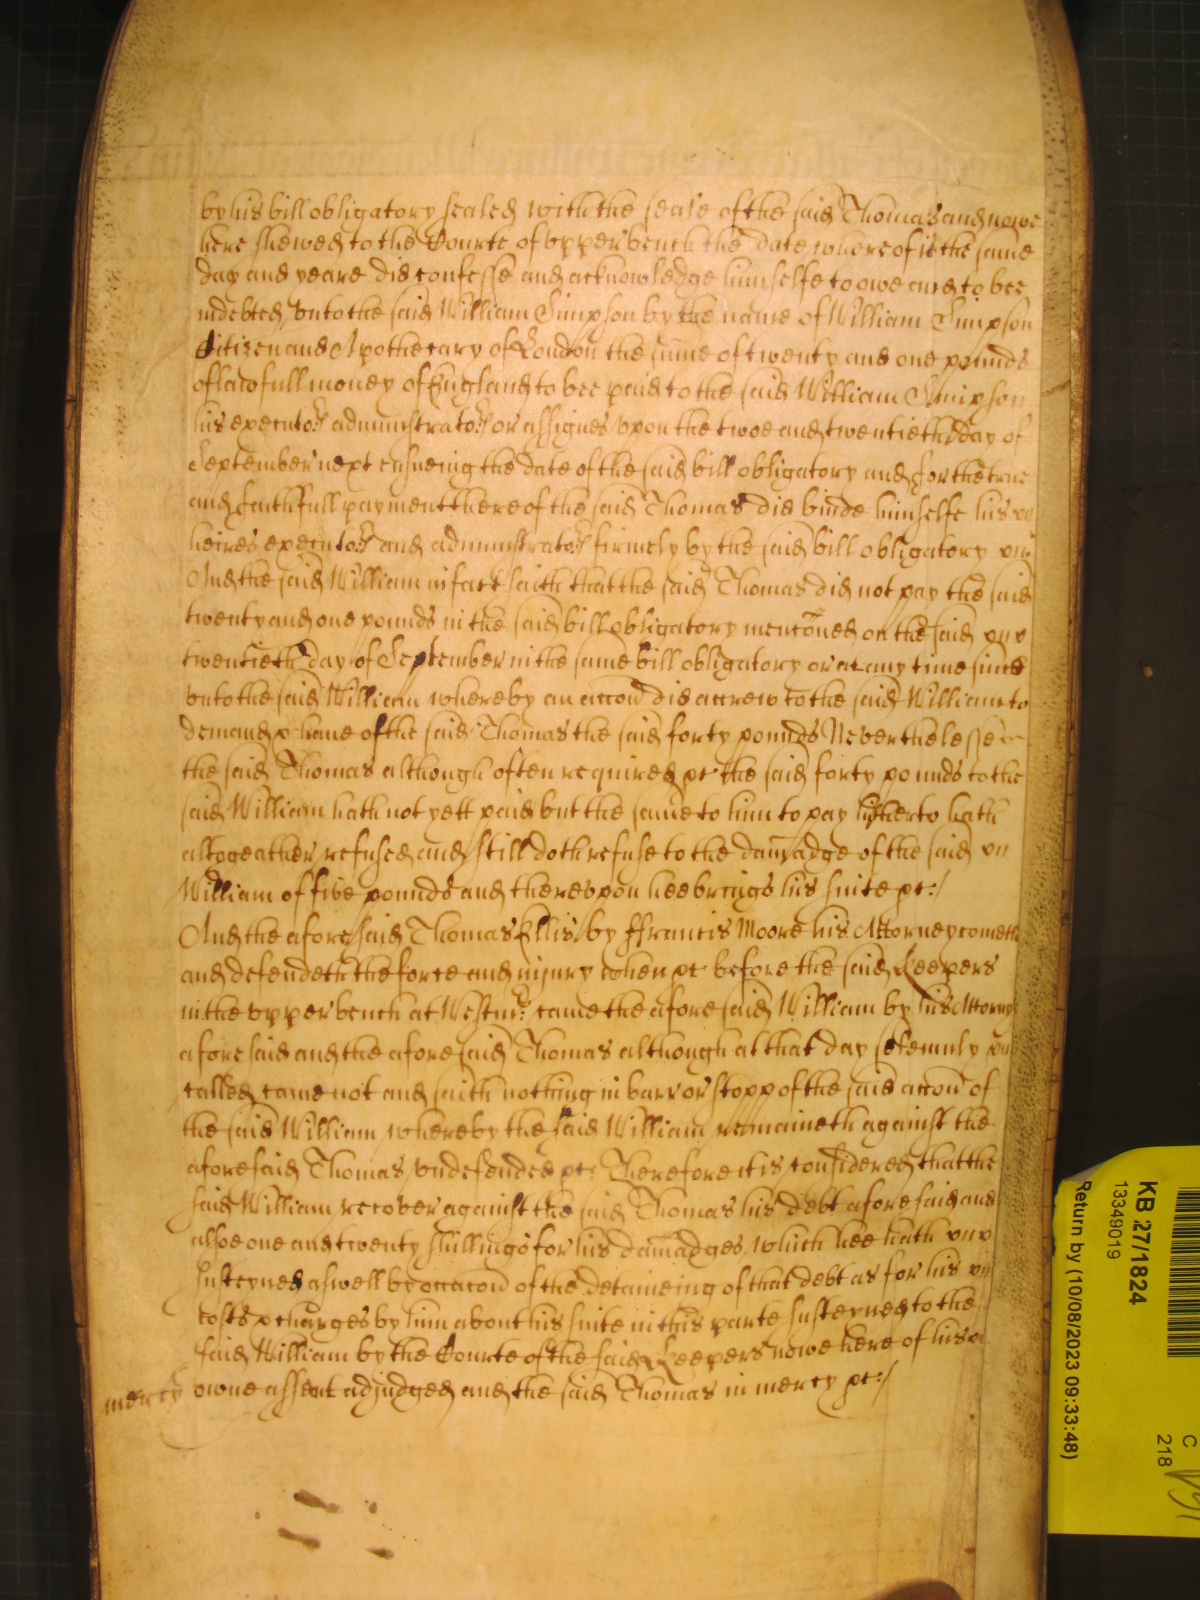 by his bill obligatory sealed with the seale of the said Thomas and nowe
here shewed to the Courte of vpper bench the date whereof is the same
day and yeare did confesse and acknowledge himselfe to owe and to bee
indebted vnto the said William Simpson by the name of William Simpson
Citizen and Apothecary of London the sume of twenty and one pounds
of lawfull money of England to bee paid to the said William Simpson
his executors administrators or assignes vpon the twoe and twentieth day of
September next ensueing the date of the said bill obligatory and for the true
and faithfull payment thereof the said Thomas did binde himselfe his
heires executors and administrators firmely by the said bill obligatory
And the said William in fact saith that the said Thomas did not pay the said
twenty and one pounds in the said bill obligatory menconed on the said
twentieth day of September in the same bill obligatory or at any time since
vnto the said William whereby an accon did accrew to the said William to
demand & haue of the said Thomas the said forty pounds Neverthelesse
the said Thomas although often required &c the said forty pounds to the
said William hath not yett paid but the same to him to pay hitherto hath
altogeather refused and still doth refuse to the damadge of the said
William of five pounds and therevpon hee brings his suite &c:/
And the aforesaid Thomas Ellis by ffrancis Moore his Attorney cometh
and defendeth the force and injury when &c before the said Keepers
in the vpper bench at Westmr. came the aforesaid William by his Attorny
aforesaid and the aforesaid Thomas although at that day solemnly
called came not and saith nothing in barr or stopp of the said accon of
the said William whereby the said William remaineth against the
aforesaid Thomas vndefended &c Therefore it is considered that the
said William recover against the said Thomas his debt aforesaid and
alsoe one and twenty shillings for his damadges which hee hath
susteyned aswell by occacon of the detaineing of that debt as for his
costs & charges by him about his suite in this parte susteyned to the
said William by the Courte of the said Keepers nowe here of his
mercy owne assent adjudged and the said Thomas in mercy &c:/
KB 27/1824
13349019
Return by (10/08/2023 09:33:48)
C
218